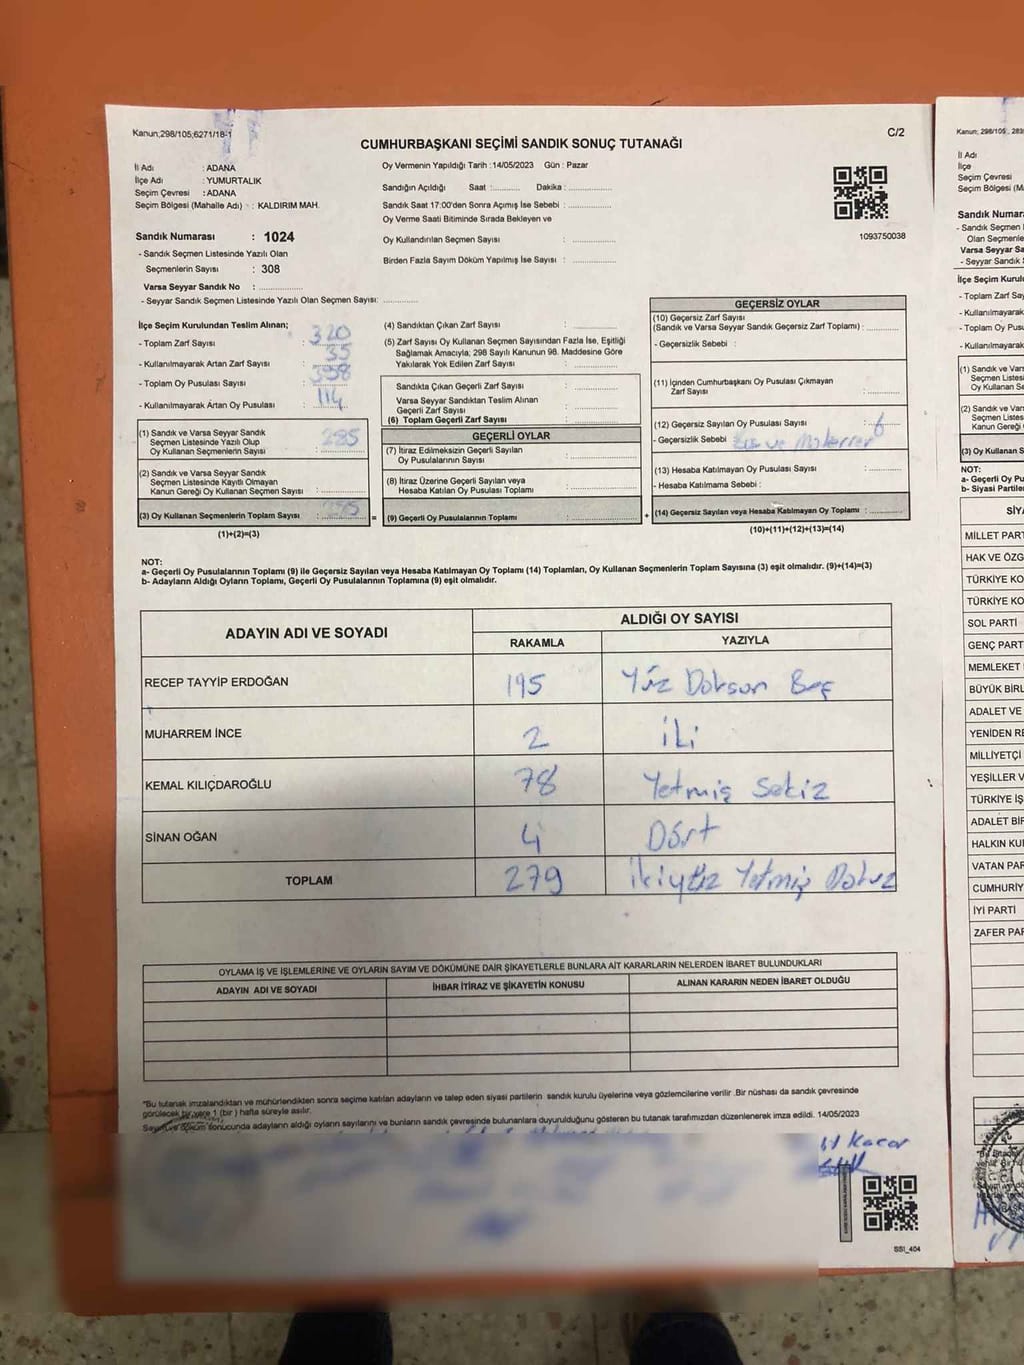 Kanun;298/105;6271/18-1
C/2
CUMHURBAŞKANI SEÇİMİ SANDIK SONUÇ TUTANAĞI
İl Adı : ADANA
İlçe Adı : YUMURTALIK
Seçim Çevresi : ADANA
Seçim Bölgesi (Mahalle Adı) : KALDIRIM MAH.
Sandık Numarası : 1024
- Sandık Seçmen Listesinde Yazılı Olan
Seçmenlerin Sayısı : 308
Varsa Seyyar Sandık No : ............
- Seyyar Sandık Seçmen Listesinde Yazılı Olan Seçmen Sayısı: ............
Oy Vermenin Yapıldığı Tarih :14/05/2023 Gün : Pazar
Sandığın Açıldığı Saat :.......... Dakika : ..............
Sandık Saat 17:00'den Sonra Açımış İse Sebebi : ..............
Oy Verme Saati Bitiminde Sırada Bekleyen ve
Oy Kullandırılan Seçmen Sayısı : ..............
Birden Fazla Sayım Döküm Yapılmış İse Sayısı : ..............
1093750038
İlçe Seçim Kurulundan Teslim Alınan;
- Toplam Zarf Sayısı : 320
- Kullanılmayarak Artan Zarf Sayısı : 35
- Toplam Oy Pusulası Sayısı :
- Kullanılmayarak Artan Oy Pusulası : 114
(1) Sandık ve Varsa Seyyar Sandık
Seçmen Listesinde Yazılı Olup
Oy Kullanan Seçmenlerin Sayısı : 285
(2) Sandık ve Varsa Seyyar Sandık
Seçmen Listesinde Kayıtlı Olmayan
Kanun Gereği Oy Kullanan Seçmen Sayısı : ............
(3) Oy Kullanan Seçmenlerin Toplam Sayısı : 285
(1)+(2)=(3)
(4) Sandıktan Çıkan Zarf Sayısı : ............
(5) Zarf Sayısı Oy Kullanan Seçmen Sayısından Fazla İse, Eşitliği
Sağlamak Amacıyla; 298 Sayılı Kanunun 98. Maddesine Göre
Yakılarak Yok Edilen Zarf Sayısı : ............
Sandıkta Çıkan Geçerli Zarf Sayısı : ............
Varsa Seyyar Sandıktan Teslim Alınan
Geçerli Zarf Sayısı : ............
(6) Toplam Geçerli Zarf Sayısı) : ............
GEÇERLİ OYLAR
(7) İtiraz Edilmeksizin Geçerli Sayılan
Oy Pusulalarının Sayısı : ............
(8) İtiraz Üzerine Geçerli Sayılan veya
Hesaba Katılan Oy Pusulası Toplamı : ............
= (9) Geçerli Oy Pusulalarının Toplamı : ............
GEÇERSİZ OYLAR
(10) Geçersiz Zarf Sayısı
(Sandık ve Varsa Seyyar Sandık Geçersiz Zarf Toplamı) : ........
- Geçersizlik Sebebi :
(11) İçinden Cumhurbaşkanı Oy Pusulası Çıkmayan
Zarf Sayısı : ........
(12) Geçersiz Sayılan Oy Pusulası Sayısı : 6
- Geçersizlik Sebebi ve Mükerrer
(13) Hesaba Katılmayan Oy Pusulası Sayısı : ........
- Hesaba Katılmama Sebebi :
+ (14) Geçersiz Sayılan veya Hesaba Katılmayan Oy Toplamı : ........
(10)+(11)+(12)+(13)=(14)
NOT:
a- Geçerli Oy Pusulalarının Toplamı (9) ile Geçersiz Sayılan veya Hesaba Katılmayan Oy Toplamı (14) Toplamları, Oy Kullanan Seçmenlerin Toplam Sayısına (3) eşit olmalıdır. (9)+(14)=(3)
b- Adayların Aldığı Oyların Toplamı, Geçerli Oy Pusulalarının Toplamına (9) eşit olmalıdır.
ADAYIN ADI VE SOYADI ALDIĞI OY SAYISI
RAKAMLA YAZIYLA
RECEP TAYYİP ERDOĞAN 195 Yüz Doksan Beş
MUHARREM İNCE 2 iki
KEMAL KILIÇDAROĞLU 78 Yetmiş Sekiz
SİNAN OĞAN 4 Dört
TOPLAM 279 ikiyüz Yetmiş Dokuz
OYLAMA İŞ VE İŞLEMLERİNE VE OYLARIN SAYIM VE DÖKÜMÜNE DAİR ŞİKAYETLERLE BUNLARA AİT KARARLARIN NELERDEN İBARET BULUNDUKLARI
ADAYIN ADI VE SOYADI İHBAR İTİRAZ VE ŞİKAYETİN KONUSU ALINAN KARARIN NEDEN İBARET OLDUĞU
"Bu tutanak imzalandıktan ve mühürlendikten sonra seçime katılan adayların ve talep eden siyasi partilerin sandık kurulu üyelerine veya gözlemcilerine verilir .Bir nüshası da sandık çevresinde
görülecek bir yere 1 (bir ) hafta süreyle asılır.
Sayım ve döküm sonucunda adayların aldığı oyların sayılarını ve bunların sandık çevresinde bulunanlara duyurulduğunu gösteren bu tutanak tarafımızdan düzenlenerek imza edildi. 14/05/2023
SSI_404
Kanun; 298/105
İl Adı
İlçe
Seçim Çevresi
Seçim Bölgesi
Sandık
- Sandık Seçmen
Olan Seçmenle
Varsa Seyyar Sa
- Seyyar Sandık
İlçe Seçim Kurul
- Toplam Zarf Say
- Kullanılmayarak
- Toplam Oy Pusu
- Kullanılmayarak
(1) Sandık ve Vars
Seçmen Listes
Oy Kullanan Se
(2) Sandık ve Vars
Seçmen Listes
Kanun Gereği
(3) Oy Kullanan S
NOT:
a- Geçerli Oy Pu
b- Siyasi Partile
SİYA
MİLLET PART
HAK VE ÖZG
TÜRKİYE KO
TÜRKİYE KO
SOL PARTİ
GENÇ PART
MEMLEKET
BÜYÜK BİRL
ADALET VE
YENİDEN RE
MİLLİYETÇİ
YEŞİLLER V
TÜRKİYE İŞ
ADALET BİR
HALKIN KU
VATAN PAR
CUMHURİY
İYİ PARTİ
ZAFER PAR